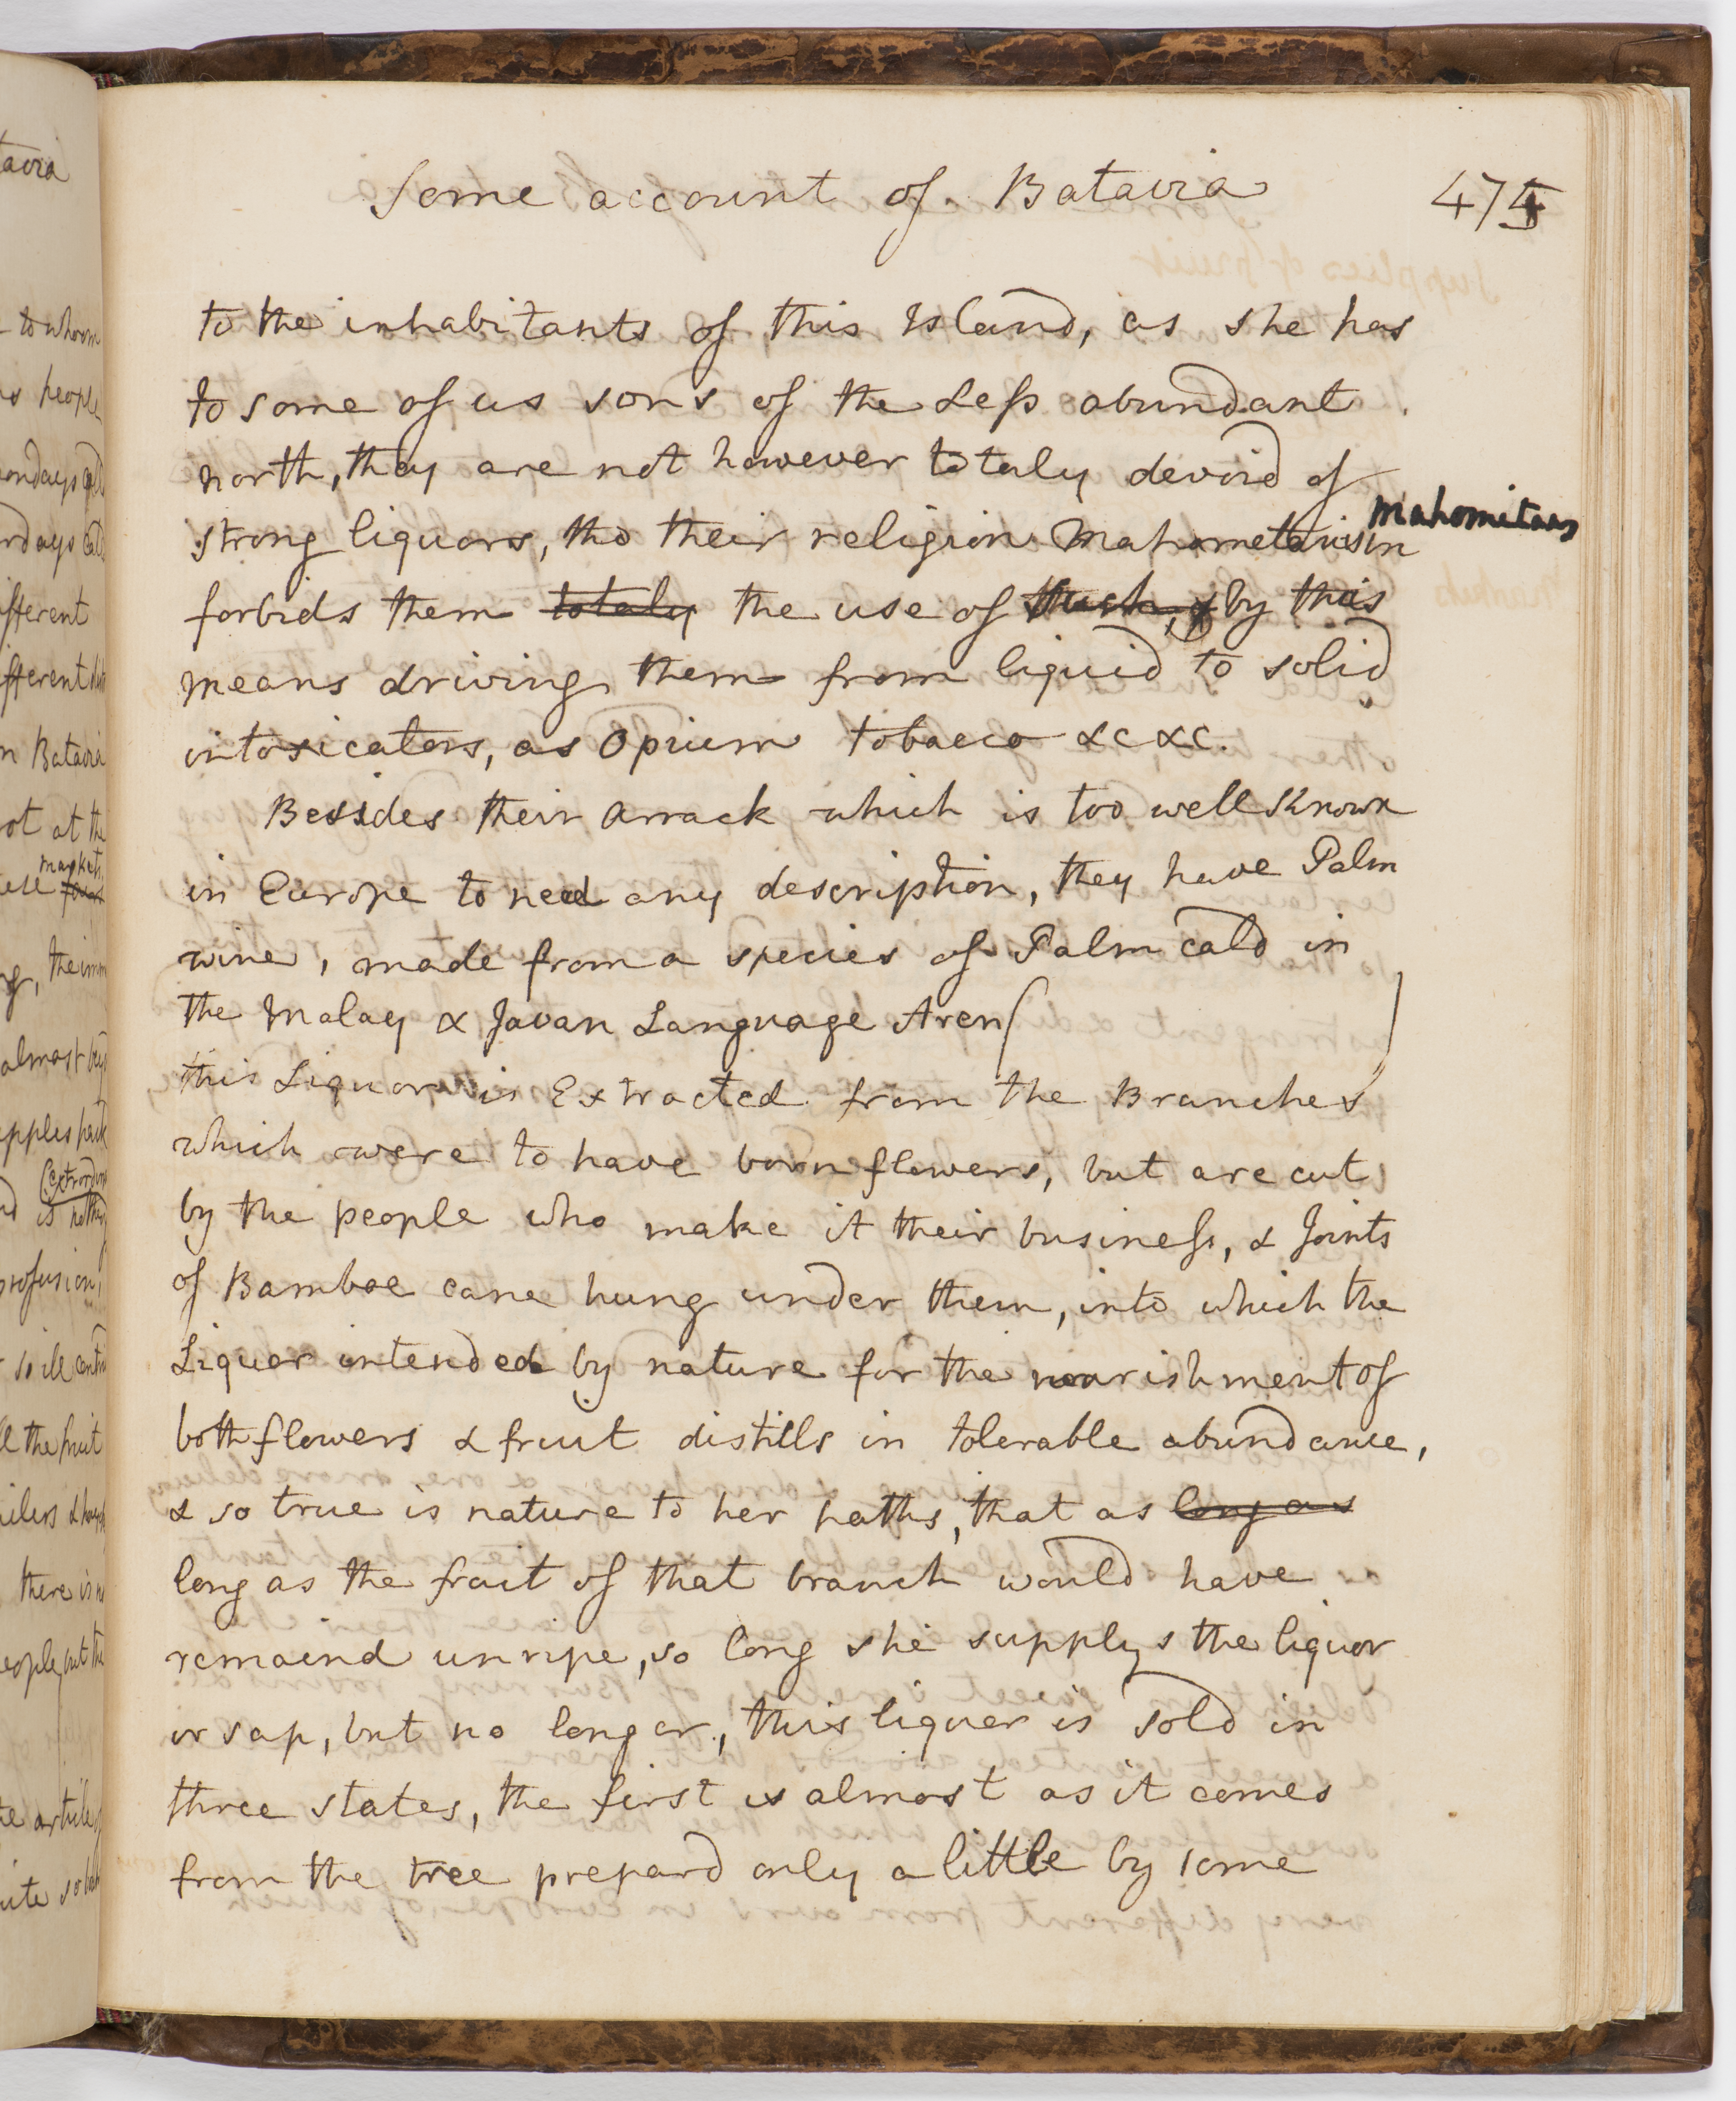 Some account of Batavia 475
to the inhabitants of this Island, as she has
to some of us sons of the Less abundant
north, they are not however totaly devoid of
strong liquors, tho their religion Mahometanism
Mahomitans
forbids them totaly the use of such, & by this
means driving them from liquid to solid
intoxicators, as Opium tobacco &c &c.
Besides their Arrack which is too well Known
in Europe to need any description, they have Palm
wine, made from a species of Palm cald in
the Malay & Javan Language Aren( )
this Liquor is Extracted from the Branches
which were to have born flowers, but are cut
by the people who make it their business, & Joints
of Bamboe cane hung under them, into which the
Liquor intended by nature for the nourishment of
both flowers & fruit distills in tolerable abundance,
& so true is nature to her paths, that as long as
long as the fruit of that branch would have
remaind unripe, so long she supplys the liquor
or sap, but no longer, this liquer is sold in
three states, the first is almost as it comes
from the tree prepard only a little by some
tavia
to whom
people
different
different
n Batavia
not at the
market
the imm
almost
extrordin
is nothing
profusion,
so ill
the fruit
there is
people but the
articles